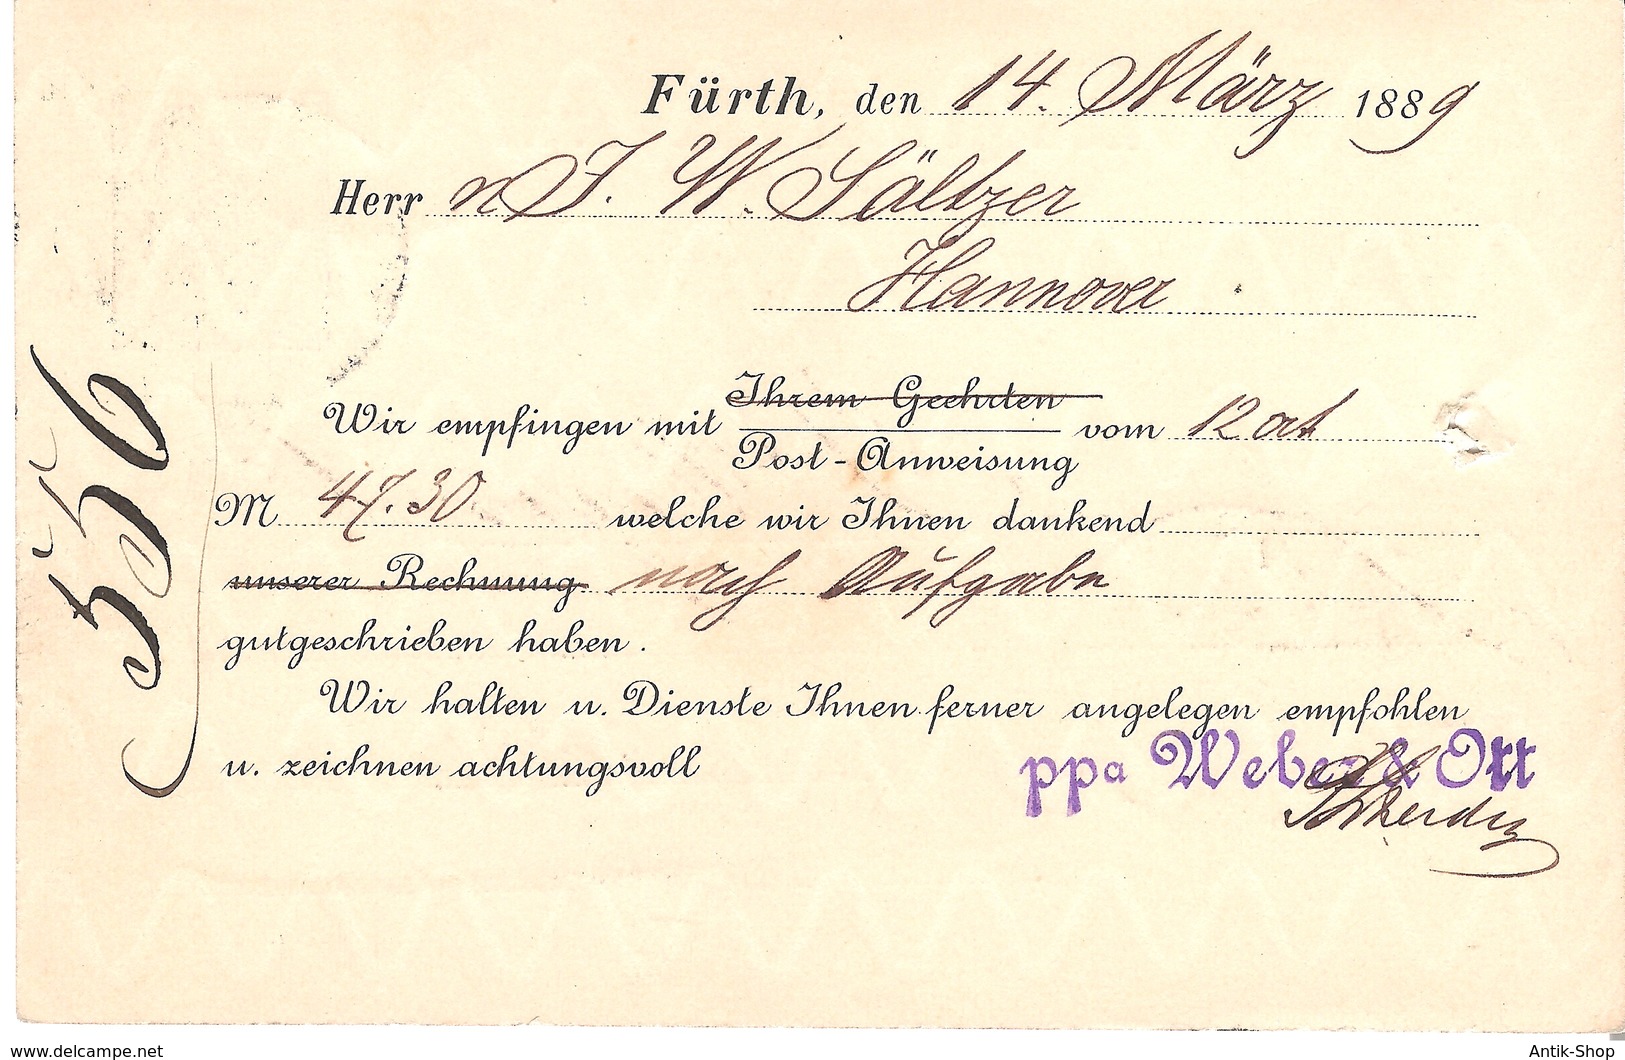 Fürth, den 14. März 1889
Herr n J. W. Sältzer
Hannover
Wir empfingen mit Ihrem Geehrten
Post-Anweisung vom 12 ct
M 47.30 welche wir Ihnen dankend
unserer Rechnung nach Aufgabe
gutgeschrieben haben.
Wir halten u. Dienste Ihnen ferner angelegen empfohlen
u. zeichnen achtungsvoll
ppa Weber & Ott
556
www.delcampe.net
Antik-Shop